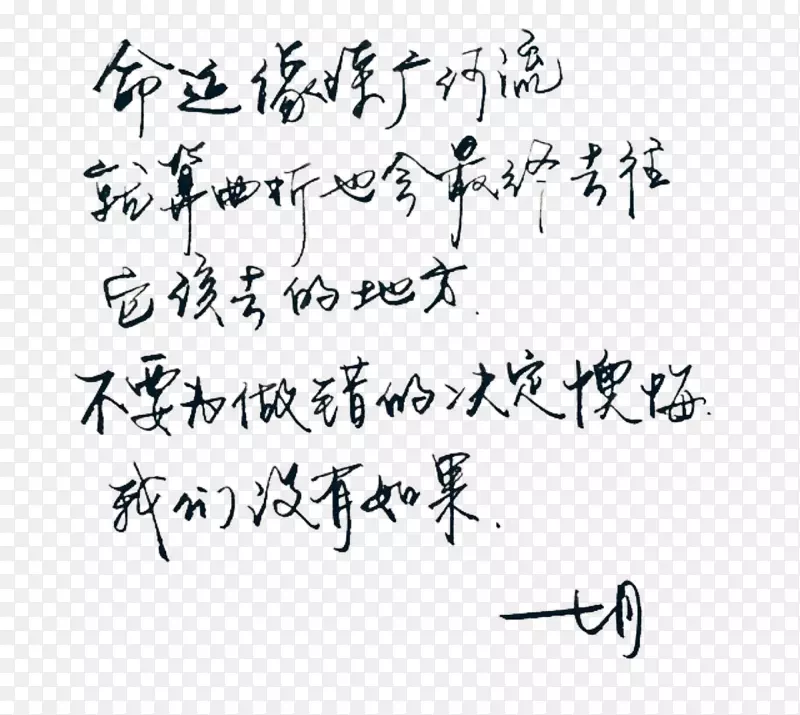 命运像条广河流
就算曲折也会最终去往
它该去的地方.
不要为做错的决定懊悔.
我们没有如果.
——七月